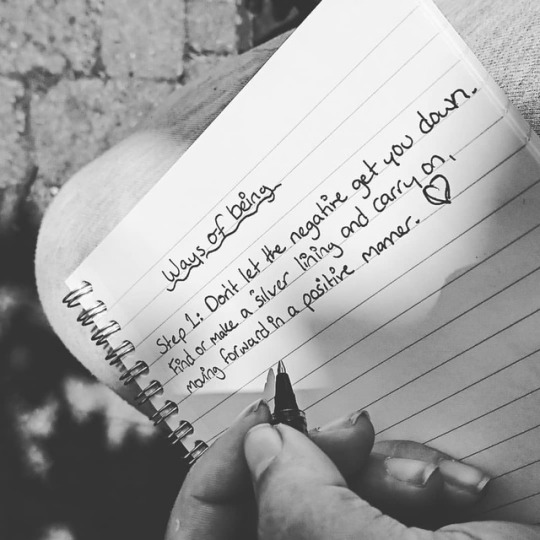 Ways of being
Step 1: Don't let the negative get you down.
Find or make a silver lining and carry on,
moving forward in a positive manner. ♡